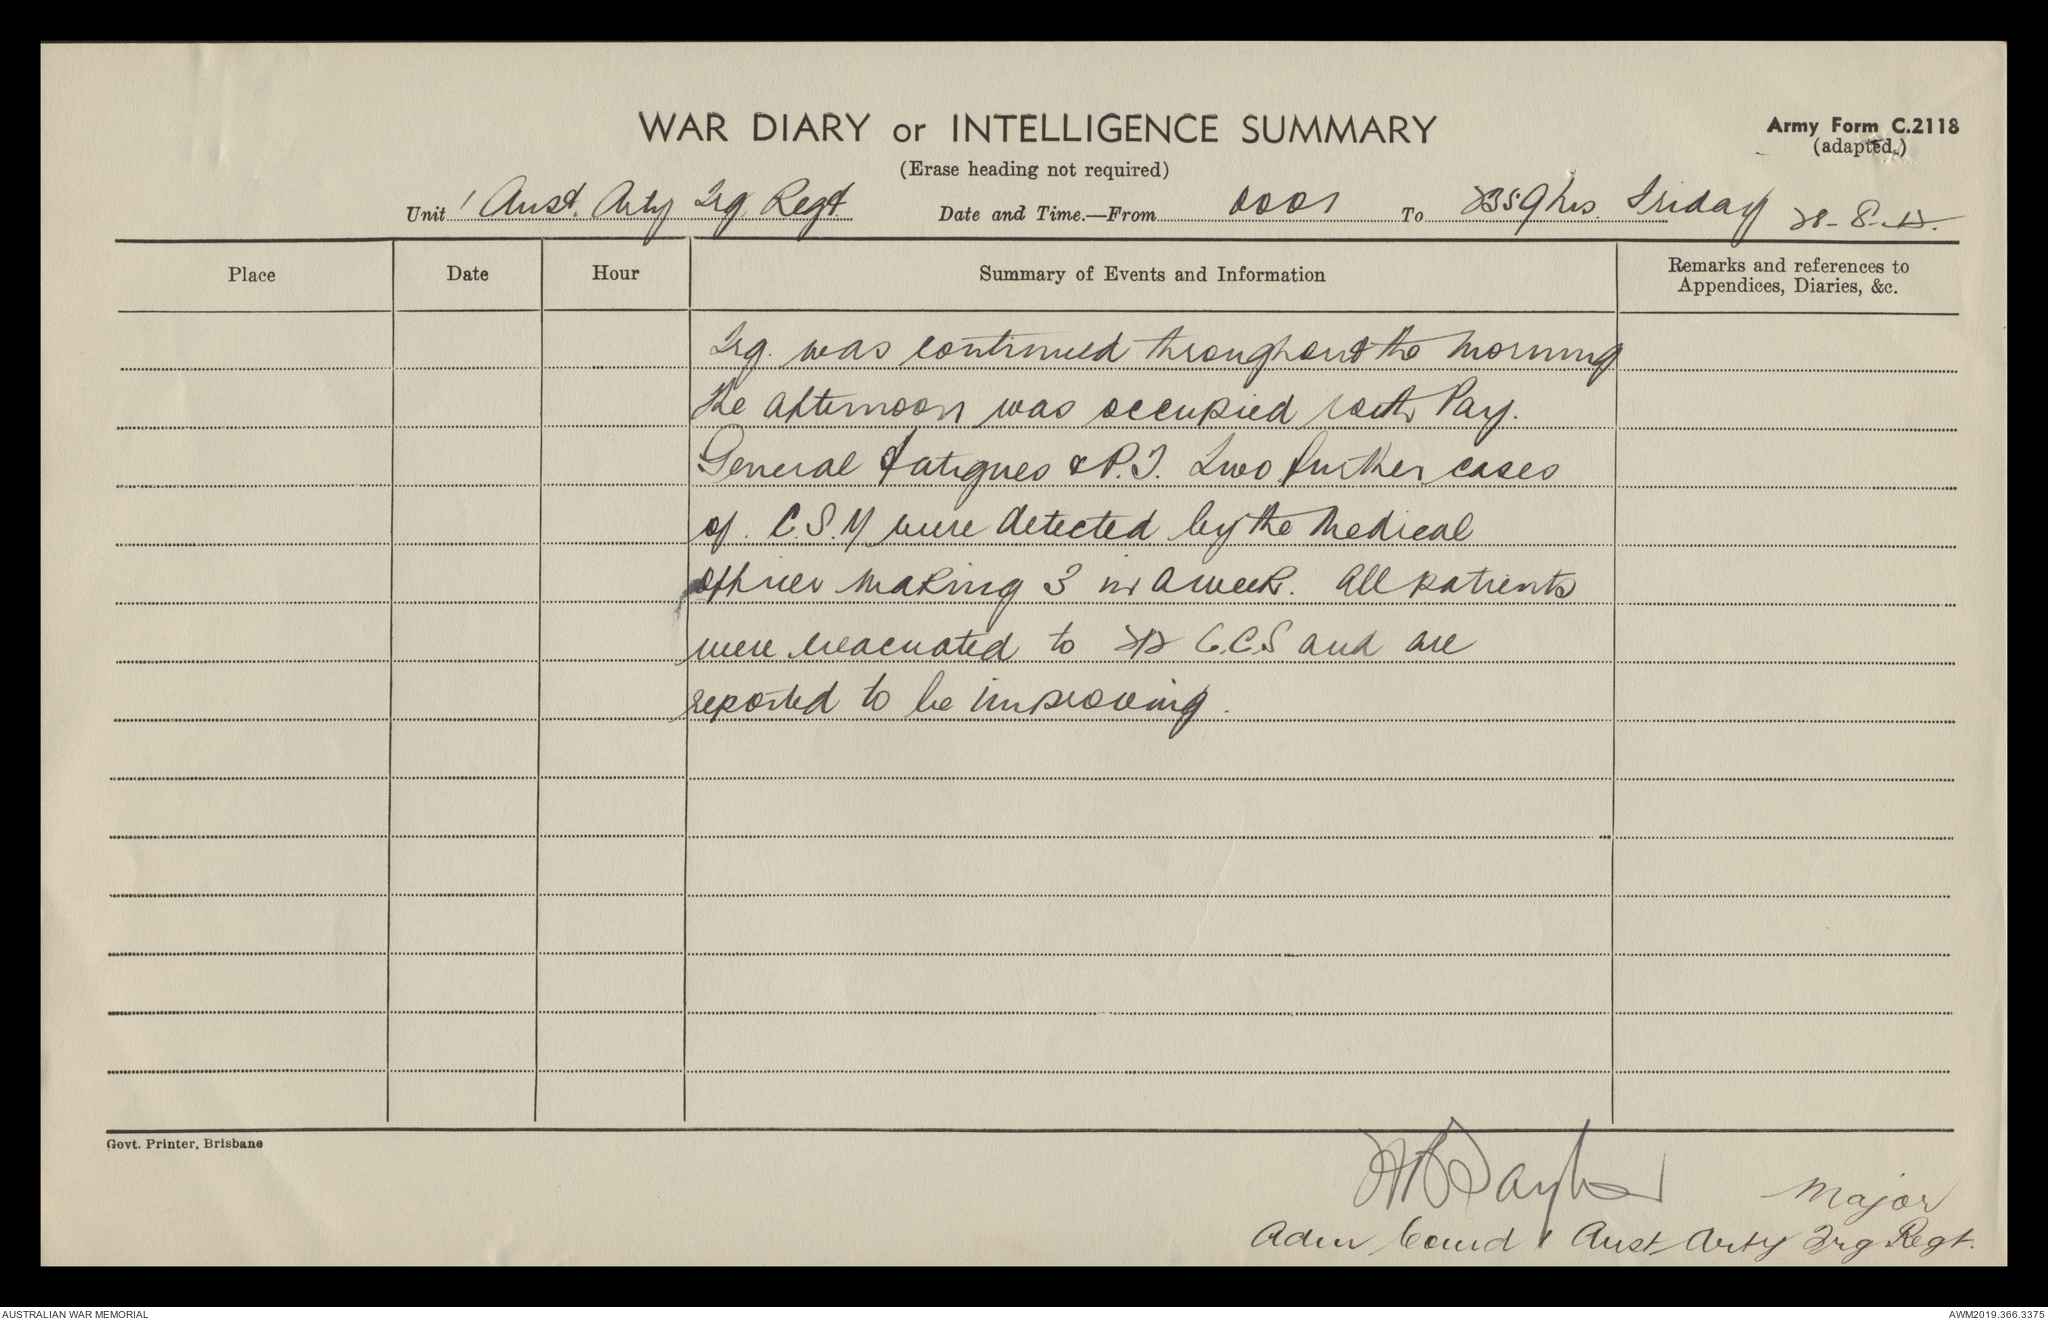 WAR DIARY or INTELLIGENCE SUMMARY
Army Form C.2118
(adapted.)
(Erase heading not required)
Unit 1 Aust. Arty Trg Regt Date and Time.—From 0001 To 2359 hrs. Friday 28-8-42.
Place Date Hour Summary of Events and Information Remarks and references to
Appendices, Diaries, &c.
Trg. was continued throughout the morning
the afternoon was occupied with Pay.
General fatigues & P.T. Two further cases
of C.S.M were detected by the Medical
Officer making 3 in a week. All patients
were evacuated to C.C.S and are
reported to be improving.
Govt. Printer, Brisbane
Major
Adm Comd 1 Aust Arty Trg Regt.
AUSTRALIAN WAR MEMORIAL
AWM2019.366.3375